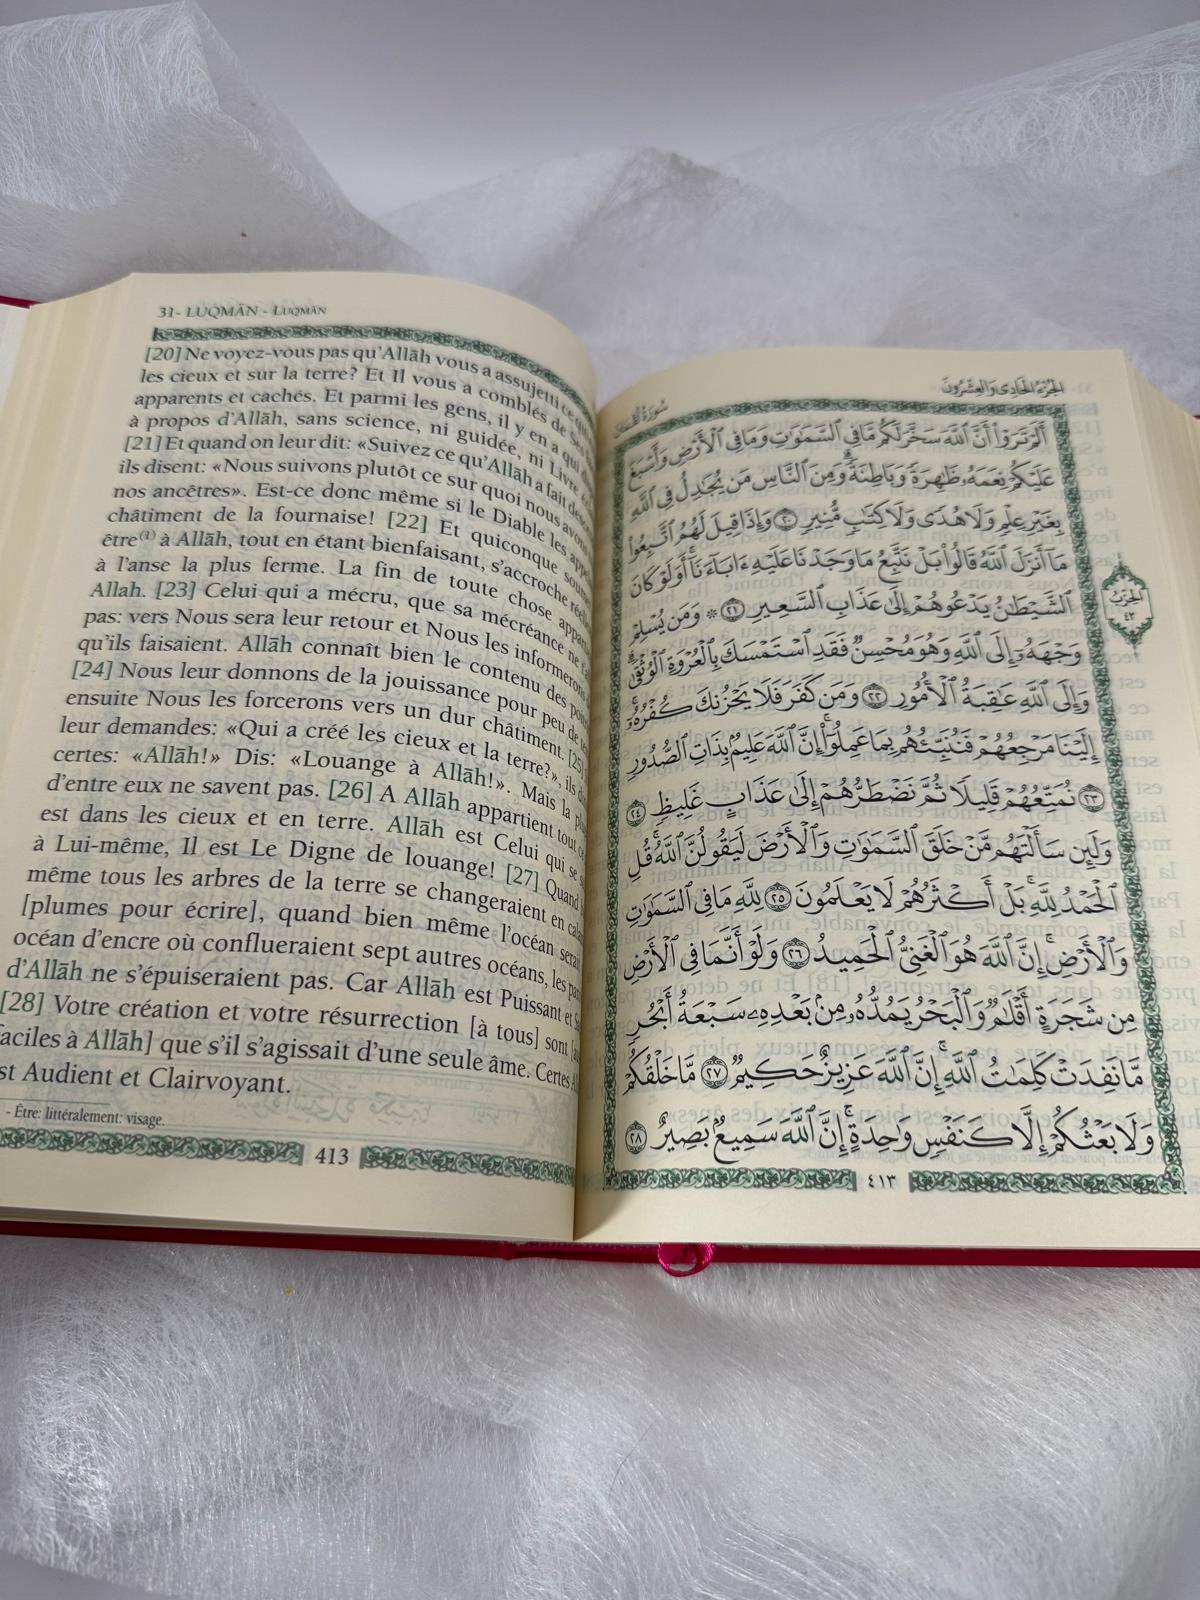 31- LUQMĀN - LUQMĀN
[20] Ne voyez-vous pas qu'Allāh vous a assujetti ce
les cieux et sur la terre? Et Il vous a comblés de
apparents et cachés. Et parmi les gens, il y en a qui
à propos d'Allāh, sans science, ni guidée, ni Livre
[21] Et quand on leur dit: «Suivez ce qu'Allāh a fait
ils disent: «Nous suivons plutôt ce sur quoi nous avons
nos ancêtres». Est-ce donc même si le Diable les
châtiment de la fournaise! [22] Et quiconque
être(1) à Allāh, tout en étant bienfaisant, s'accroche
à l'anse la plus ferme. La fin de toute chose
Allah. [23] Celui qui a mécru, que sa mécréance ne
pas: vers Nous sera leur retour et Nous les informerons
qu'ils faisaient. Allāh connaît bien le contenu des
[24] Nous leur donnons de la jouissance pour peu de
ensuite Nous les forcerons vers un dur châtiment. [25]
leur demandes: «Qui a créé les cieux et la terre?», ils
certes: «Allāh!» Dis: «Louange à Allāh!». Mais la
d'entre eux ne savent pas. [26] A Allāh appartient tout
est dans les cieux et en terre. Allāh est Celui qui se
à Lui-même, Il est Le Digne de louange! [27] Quand
même tous les arbres de la terre se changeraient en
[plumes pour écrire], quand bien même l'océan serait
océan d'encre où conflueraient sept autres océans, les
d'Allāh ne s'épuiseraient pas. Car Allāh est Puissant et
[28] Votre création et votre résurrection [à tous] sont
faciles à Allāh] que s'il s'agissait d'une seule âme. Certes
st Audient et Clairvoyant.
- Être: littéralement: visage.
413
الجزء الحادى والعشرون
سورة لقمان
أَلَمْ تَرَوْا۟ أَنَّ ٱللَّهَ سَخَّرَ لَكُم مَّا فِى ٱلسَّمَٰوَٰتِ وَمَا فِى ٱلْأَرْضِ وَأَسْبَغَ
عَلَيْكُمْ نِعَمَهُۥ ظَٰهِرَةً وَبَاطِنَةً ۗ وَمِنَ ٱلنَّاسِ مَن يُجَٰدِلُ فِى ٱللَّهِ
بِغَيْرِ عِلْمٍ وَلَا هُدًى وَلَا كِتَٰبٍ مُّنِيرٍ ٢٠ وَإِذَا قِيلَ لَهُمُ ٱتَّبِعُوا۟
مَآ أَنزَلَ ٱللَّهُ قَالُوا۟ بَلْ نَتَّبِعُ مَا وَجَدْنَا عَلَيْهِ ءَابَآءَنَآ ۚ أَوَلَوْ كَانَ
ٱلشَّيْطَٰنُ يَدْعُوهُمْ إِلَىٰ عَذَابِ ٱلسَّعِيرِ ٢١ * وَمَن يُسْلِمْ
وَجْهَهُۥٓ إِلَى ٱللَّهِ وَهُوَ مُحْسِنٌ فَقَدِ ٱسْتَمْسَكَ بِٱلْعُرْوَةِ ٱلْوُثْقَىٰ ۗ
وَإِلَى ٱللَّهِ عَٰقِبَةُ ٱلْأُمُورِ ٢٢ وَمَن كَفَرَ فَلَا يَحْزُنكَ كُفْرُهُۥٓ ۚ
إِلَيْنَا مَرْجِعُهُمْ فَنُنَبِّئُهُم بِمَا عَمِلُوٓا۟ ۚ إِنَّ ٱللَّهَ عَلِيمٌۢ بِذَاتِ ٱلصُّدُورِ
٢٣ نُمَتِّعُهُمْ قَلِيلًا ثُمَّ نَضْطَرُّهُمْ إِلَىٰ عَذَابٍ غَلِيظٍ ٢٤
وَلَئِن سَأَلْتَهُم مَّنْ خَلَقَ ٱلسَّمَٰوَٰتِ وَٱلْأَرْضَ لَيَقُولُنَّ ٱللَّهُ ۚ قُلِ
ٱلْحَمْدُ لِلَّهِ ۚ بَلْ أَكْثَرُهُمْ لَا يَعْلَمُونَ ٢٥ لِلَّهِ مَا فِى ٱلسَّمَٰوَٰتِ
وَٱلْأَرْضِ ۚ إِنَّ ٱللَّهَ هُوَ ٱلْغَنِىُّ ٱلْحَمِيدُ ٢٦ وَلَوْ أَنَّمَا فِى ٱلْأَرْضِ
مِن شَجَرَةٍ أَقْلَٰمٌ وَٱلْبَحْرُ يَمُدُّهُۥ مِنۢ بَعْدِهِۦ سَبْعَةُ أَبْحُرٍ
مَّا نَفِدَتْ كَلِمَٰتُ ٱللَّهِ ۗ إِنَّ ٱللَّهَ عَزِيزٌ حَكِيمٌ ٢٧ مَّا خَلْقُكُمْ
وَلَا بَعْثُكُمْ إِلَّا كَنَفْسٍ وَٰحِدَةٍ ۗ إِنَّ ٱللَّهَ سَمِيعٌۢ بَصِيرٌ ٢٨
الحزب
٤٢
٤١٣